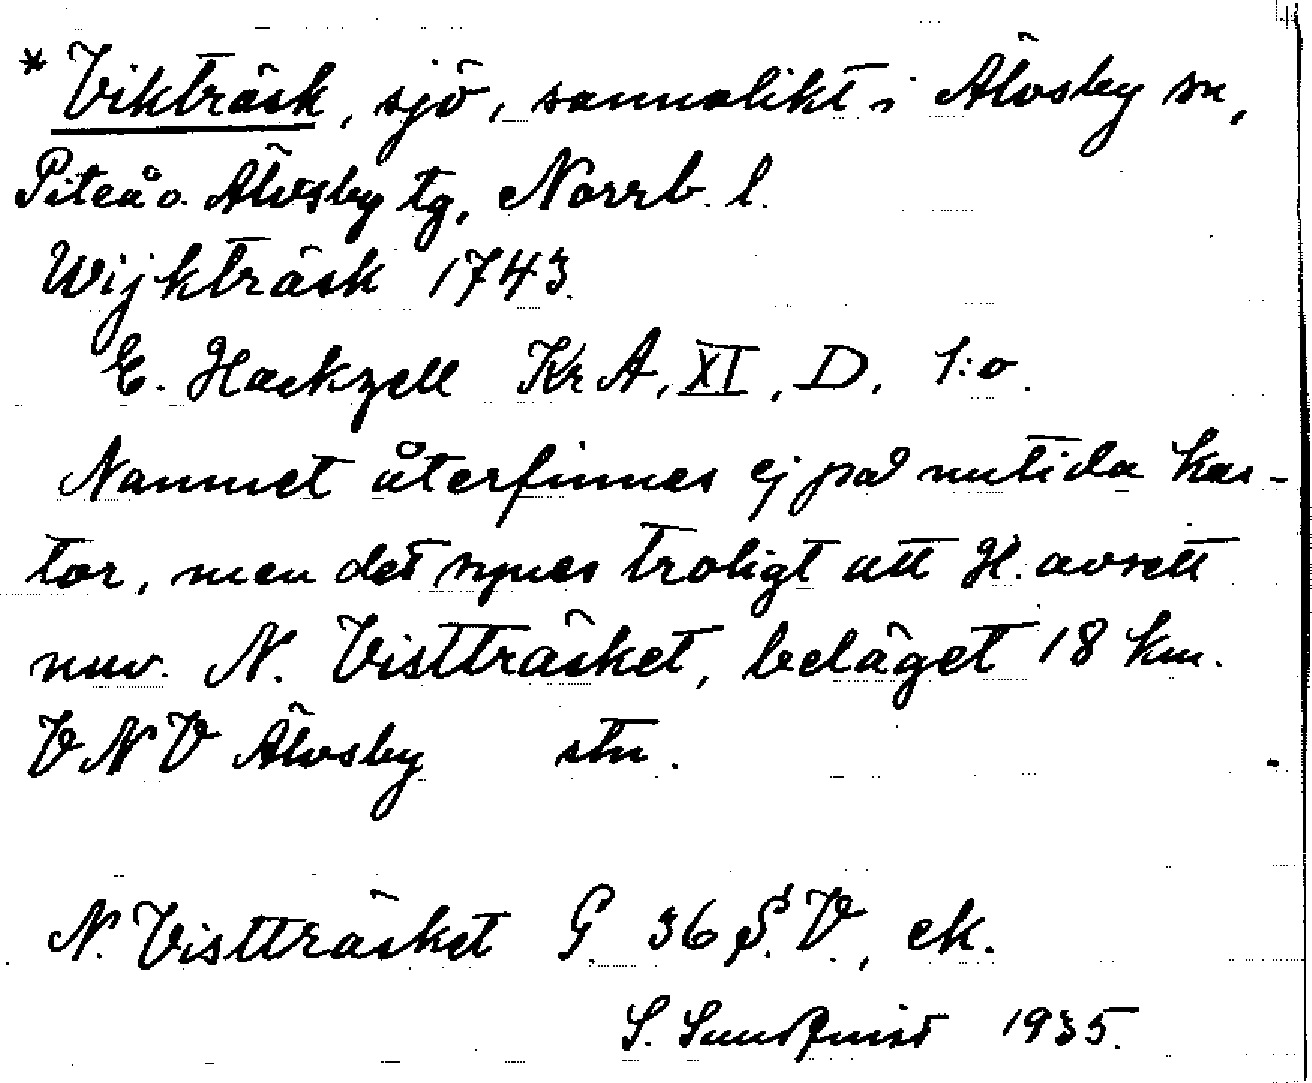 * Vikträsk, sjö, sannolikt i Älvsby sn,
Piteå o. Älvsby tg, Norrb. l.
Wijkträsk 1743.
E. Hackzell KrA, XI, D, 1:o.
Namnet återfinnes ej på nutida kar-
tor, men det synes troligt att H. avsett
nuv. N. Vistträsket, beläget 18 km.
VNV Älvsby stn.
N. Vistträsket G. 36 S.V., ek.
S. Sundquist 1935.